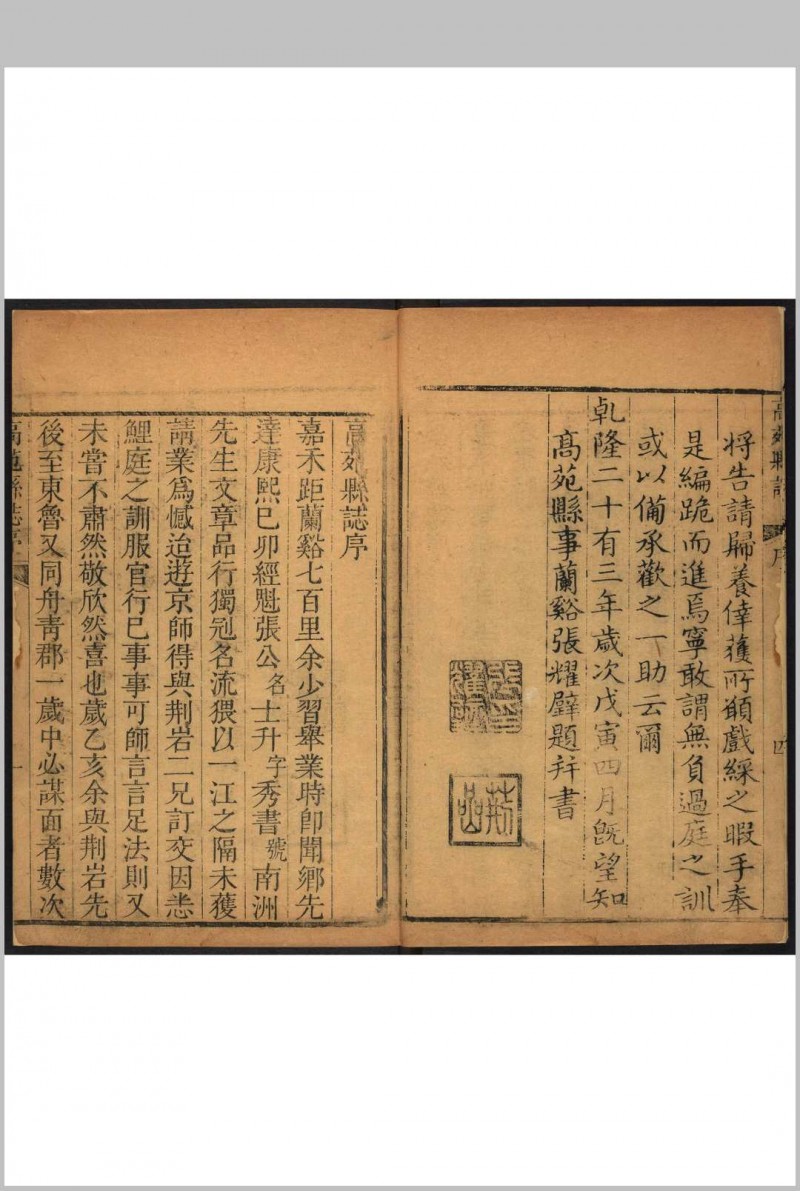 高苑縣誌
序
四
將告請歸養倖獲所願戲綵之暇手奉
是編跪而進焉寧敢謂無負過庭之訓
或以備承歡之一助云爾
乹隆二十有三年歲次戊寅四月旣望知
高苑縣事蘭谿張耀璧題并書
荊山
高苑縣誌序
嘉禾距蘭谿七百里余少習舉業時卽聞鄉先
達康熙己卯經魁張公名士升字秀書號南洲
先生文章品行獨冠名流猥以一江之隔未獲
請業爲憾迨遊京師得與荆岩二兄訂交因悉
鯉庭之訓服官行己事事可師言言足法則又
未嘗不肅然敬欣然喜也歲乙亥余與荆岩先
後至東魯又同舟靑郡一歲中必謀面者數次
高苑縣誌序
一